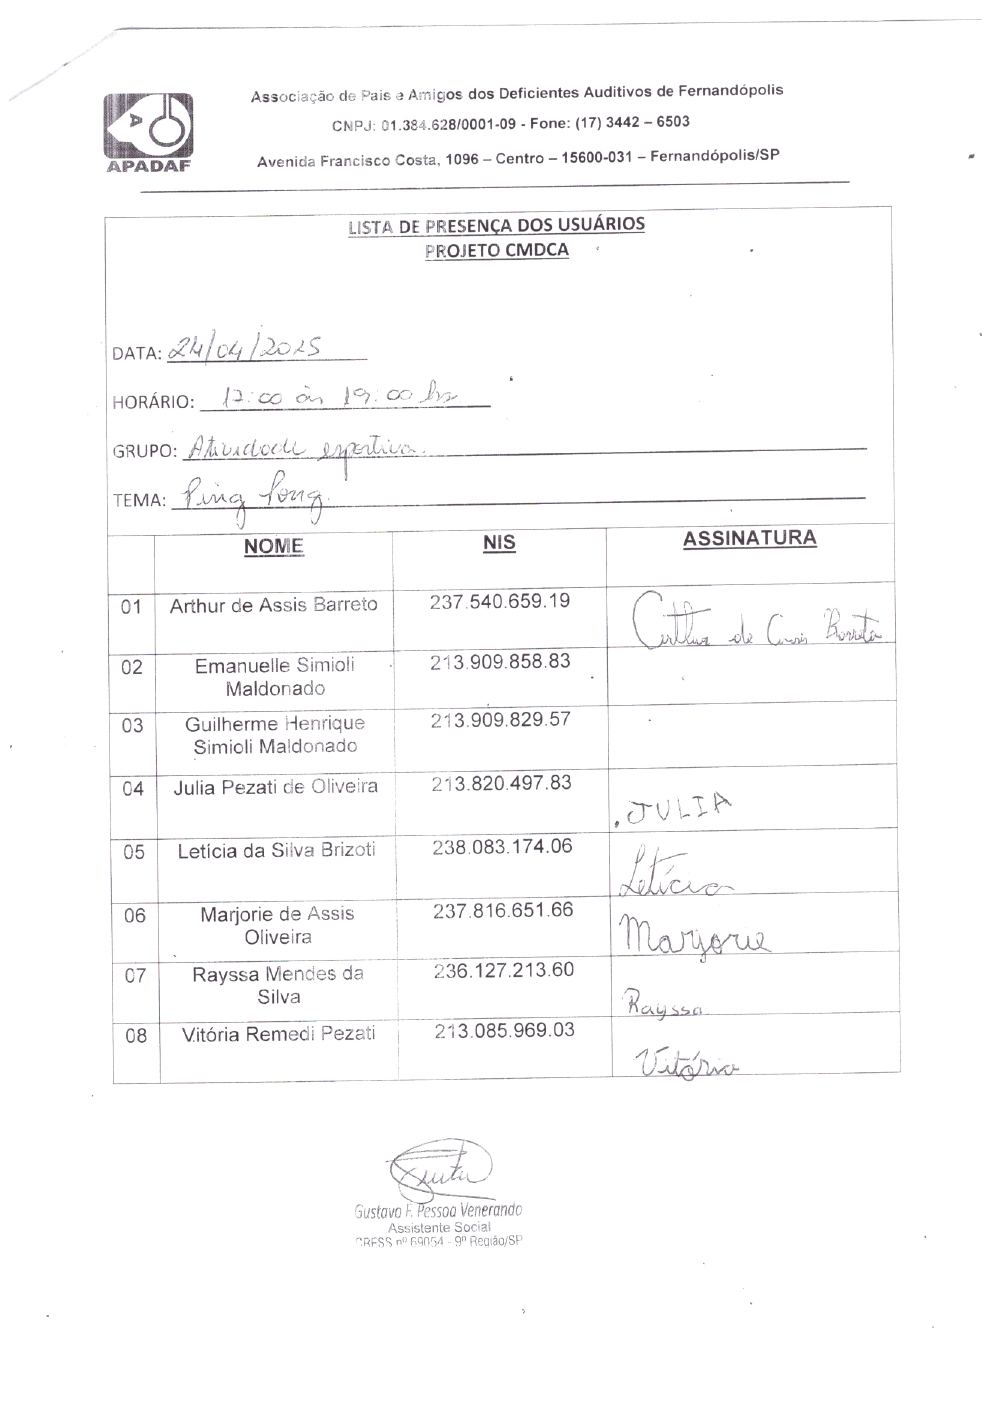 Associação de Pais e Amigos dos Deficientes Auditivos de Fernandópolis
CNPJ: 01.384.628/0001-09 - Fone: (17) 3442 – 6503
Avenida Francisco Costa, 1096 – Centro – 15600-031 – Fernandópolis/SP
APADAF
LISTA DE PRESENÇA DOS USUÁRIOS
PROJETO CMDCA
DATA: 24/04/2025
HORÁRIO: 17:00 às 19:00 hs
GRUPO: Atividade esportiva.
TEMA: Ping Pong.
NOME NIS ASSINATURA
01 Arthur de Assis Barreto 237.540.659.19 Arthur de Assis Barreto
02 Emanuelle Simioli 213.909.858.83
Maldonado
03 Guilherme Henrique 213.909.829.57
Simioli Maldonado
04 Julia Pezati de Oliveira 213.820.497.83 JULIA
05 Letícia da Silva Brizoti 238.083.174.06 Letícia
06 Marjorie de Assis 237.816.651.66 Marjorie
Oliveira
07 Rayssa Mendes da 236.127.213.60 Rayssa
Silva
08 Vitória Remedi Pezati 213.085.969.03 Vitória
Gustavo F. Pessoa Venerando
Assistente Social
CRESS nº 69054 - 9º Região/SP